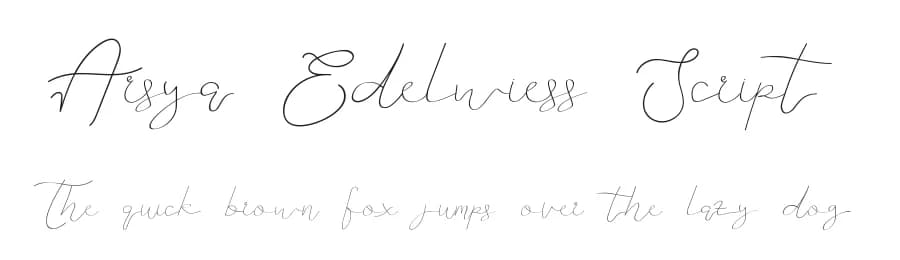 Aisya Edelwiess Script
The quick brown fox jumps over the lazy dog